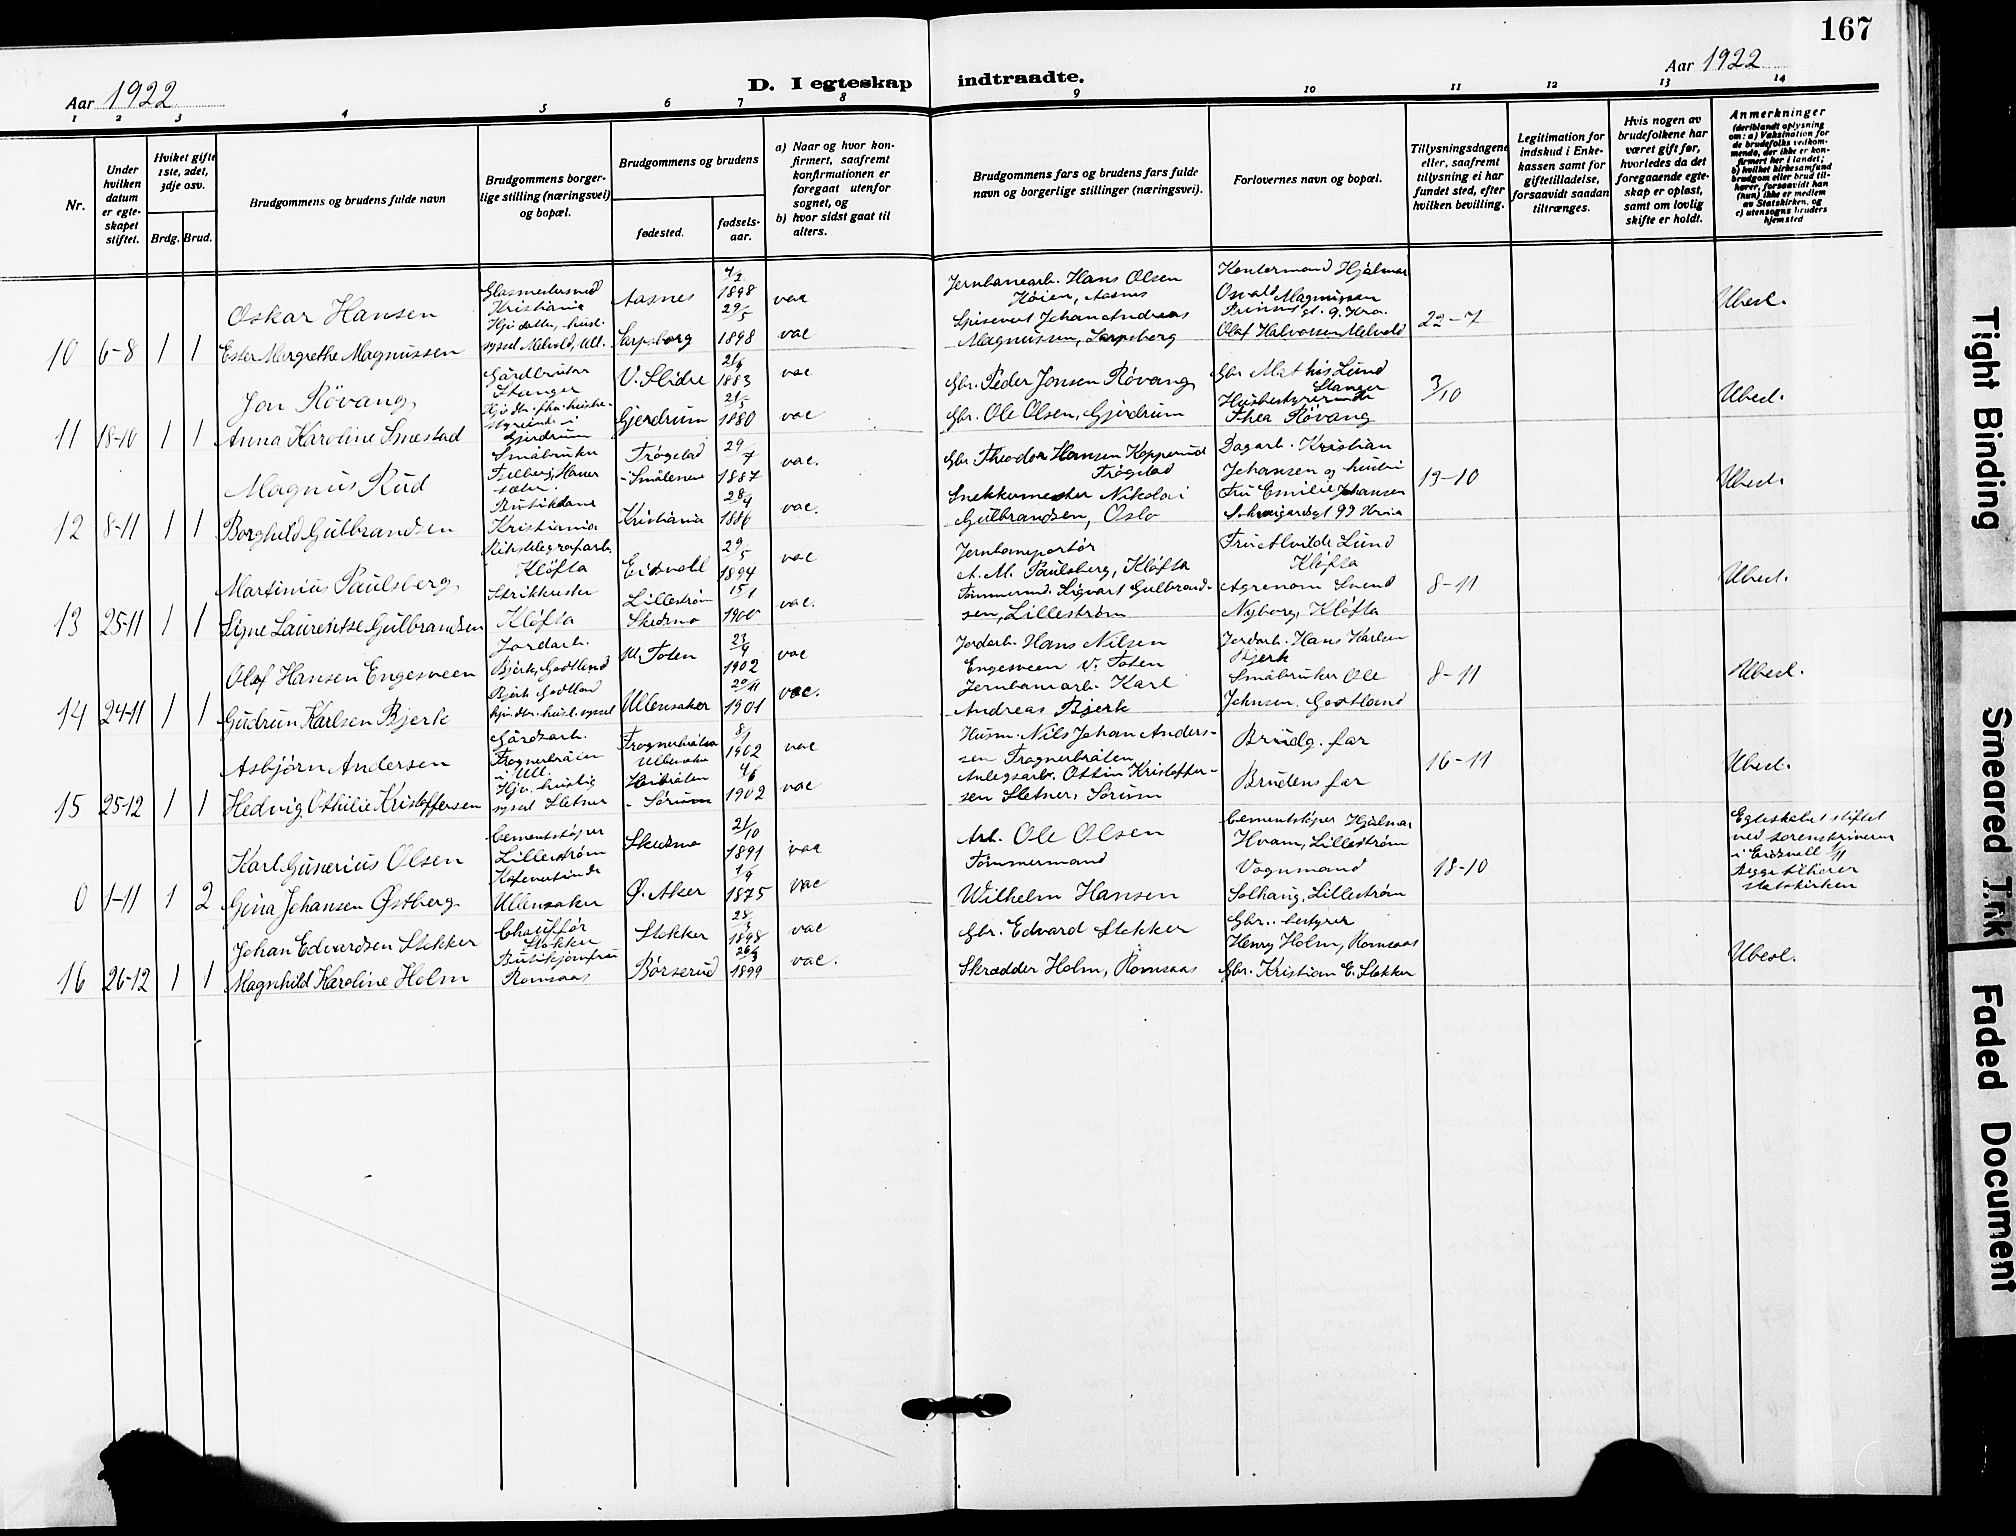 167
Aar 1922
D. I egteskap indtraadte.
Aar 1922
1 2 3 4 5 6 7 8 9 10 11 12 13 14
Nr.
Under hvilken datum er egteskapet stiftet.
Hvilket gifte 1ste, 2det, 3dje osv.
Brdg. Brud.
Brudgommens og brudens fulde navn
Brudgommens borgerlige stilling (næringsvei) og bopæl.
Brudgommens og brudens
fødested.
fødselsaar.
a) Naar og hvor konfirmert, saafremt konfirmationen er foregaat utenfor sognet, og
b) hvor sidst gaat til alters.
Brudgommens fars og brudens fars fulde navn og borgerlige stillinger (næringsvei).
Forlovernes navn og bopæl.
Tillysningsdagene eller, saafremt tillysning ei har fundet sted, efter hvilken bevilling.
Legitimation for indskud i Enkekassen samt for giftetilladelse, forsaavidt saadan tiltrænges.
Hvis nogen av brudefolkene har været gift før, hvorledes da det foregaaende egteskap er opløst, samt om lovlig skifte er holdt.
Anmerkninger
(deriblandt oplysning om: a) Vaksination for de brudefolks vedkommende, der ikke er konfirmert her i landet; b) hvilket kirkesamfund brudgom eller brud tilhører, forsaavidt han (hun) ikke er medlem av Statskirken, og c) utensogns bruders hjemsted
Oskar Hansen
Kristiania
Aasnes
4/2 1898
vac
Jernbanearb. Hans Olsen
Høien, Aasnes
Hjalmar
Osvald Magnussen
10 6-8 1 1 Ester Margrethe Magnussen
Sarpsborg
29/5 1898
vac
Spisevert Johan Andreas
Magnussen, Sarpsborg
Olaf Halvorsen Melvold
22-7
Ubesl.
Jon Røvang
Gårdbruker
Stange
V. Slidre
1883
vac
Gbr. Peder Jonsen Røvang
Gbr. Mathis Lund
Stanger
11 18-10 1 1 Anna Karoline Smestad
Gjerdrum
Gjerdrum
21/5 1880
vac
Gbr. Ole Olsen, Gjerdrum
Husbestyrerinde
Thea Røvang
3/10
Ubesl.
Magnus Rud
Småbruker
Trøgstad
- Smålenene
29/7 1887
vac.
Gbr. Theodor Hansen Kopperud
Trøgstad
Dagarb. Kristian
Johansen og hustru
12 8-11 1 1 Borghild Gulbrandsen
Butikdame
Kristiania
Kristiania
28/4 1886
vac.
Snekkermester Nikolai
Gulbrandsen, Oslo
Fru Emilie Johansen
Schweigaardsgt 99 Kr.ia
19-10
Ubesl.
Martinius Paulsberg
Rikstelegrafarb.
Kløfta
Eidsvold
29/5 1894
vac
Jernbaneportør
A. M. Paulsberg, Kløfta
Fru Alvilde Lund
Kløfta
13 25-11 1 1 Signe Laurentse Gulbrandsen
Kløfta
Lillestrøm
Skedsmo
15/1 1900
vac.
Tømmermd. Sigvart Gulbrandsen, Lillestrøm
Agronom Svend
Nyborg, Kløfta
8-11
Ubesl.
Olaf Hansen Engesveen
Jordarb.
Bjerk, Gotland
V. Toten
23/4 1902
vac
Jordarb. Hans Nilsen
Engesveen V. Toten
Jordarb. Hans Karlsen
Bjerk
14 24-11 1 1 Gudrun Karlsen Bjerk
Ullensaker
20/11 1901
vac.
Jernbanearb. Karl
Andreas Bjerk
Småbruker Ole
Johnsen, Gotland
8-11
Ubesl.
Asbjørn Andersen
Gårdsarb.
Trognerbråten
i Ull.
Trognerbråten
Ullensaker
8/1 1902
vac
Husm. Nils Johan Andersen Trognerbråten
Brudg. far
15 25-12 1 1 Hedvig Othilie Kristoffersen
Hjv. huslig
syssel Sletner
- Sørum
4/6 1902
vac
Anlegsarb. Ottin Kristoffersen Sletner, Sørum
Brudens far
16-11
Ubesl.
Karl Gunerius Olsen
Cementstøper
Lillestrøm
Skedsmo
21/10 1891
vac
Arb. Ole Olsen
Cementstøper Hjalmar
Hvam, Lillestrøm
0 1-11 1 2 Gina Johansen Østberg
Kafevertinde
Ullensaker
Ø. Aker
1/9 1875
vac
Tømmermand
Wilhelm Hansen
Vognmand
Solhaug, Lillestrøm
18-10
Egteskabet stiftet
ved sorenskriveren
i Eidsvoll 1/11
Begge tilhører
statskirken
Johan Edvardsen Stokker
Chauffør
Stokker
Stokker
28/3 1898
vac
Gbr. Edvard Stokker
Gbr. bestyrer
Henry Holm, Romsaas
16 26-12 1 1 Magnhild Karoline Holm
Butikjomfru
Romsaas
Børserud
26/3 1899
vac.
Skrædder Holm, Romsaas
Gbr. Kristian E. Stokker
Ubesl.
Tight Binding
Smeared Ink
Faded Document